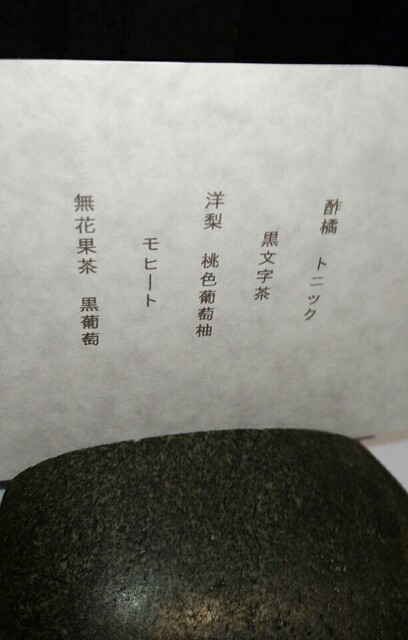 酢橘　トニック
黒文字茶
洋梨　桃色葡萄柚
モヒート
無花果茶　黒葡萄